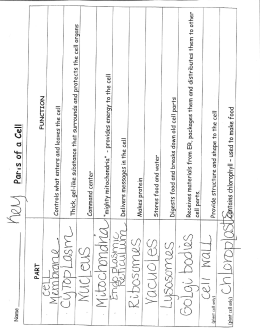 Name Key
Parts of a Cell
PART FUNCTION
Cell Membrane Controls what enters and leaves the cell
Cytoplasm Thick, gel-like substance that surrounds and protects the cell organs
Nucleus Command center
Mitochondria "mighty mitochondria" - provides energy to the cell
Endoplasmic Reticulum Delivers messages in the cell
Ribosomes Makes protein
Vacuoles Stores food and water
Lysosomes Digests food and breaks down old cell parts
Golgi bodies Receives materials from ER, packages them and distributes them to other
cell parts
(plant cell only) cell wall Provide structure and shape to the cell
(plant cell only) Chloroplasts Contains chlorophyll - used to make food